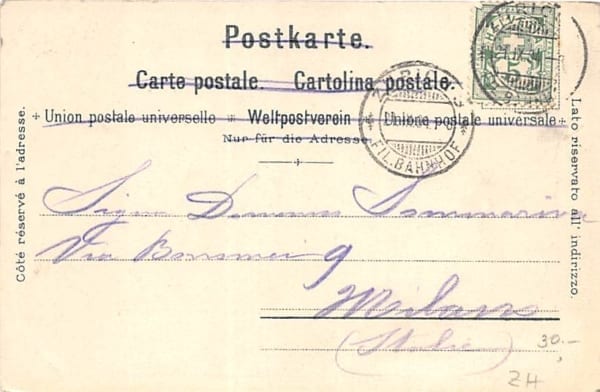 Postkarte.
Carte postale. Cartolina postale.
Union postale universelle Weltpostverein Unione postale universale
Nur für die Adresse.
Côté réservé à l'adresse.
Lato riservato all' indirizzo.
FIL. BAHNHOF
5
Via
9
Milano
(Italie)
30.-
ZH